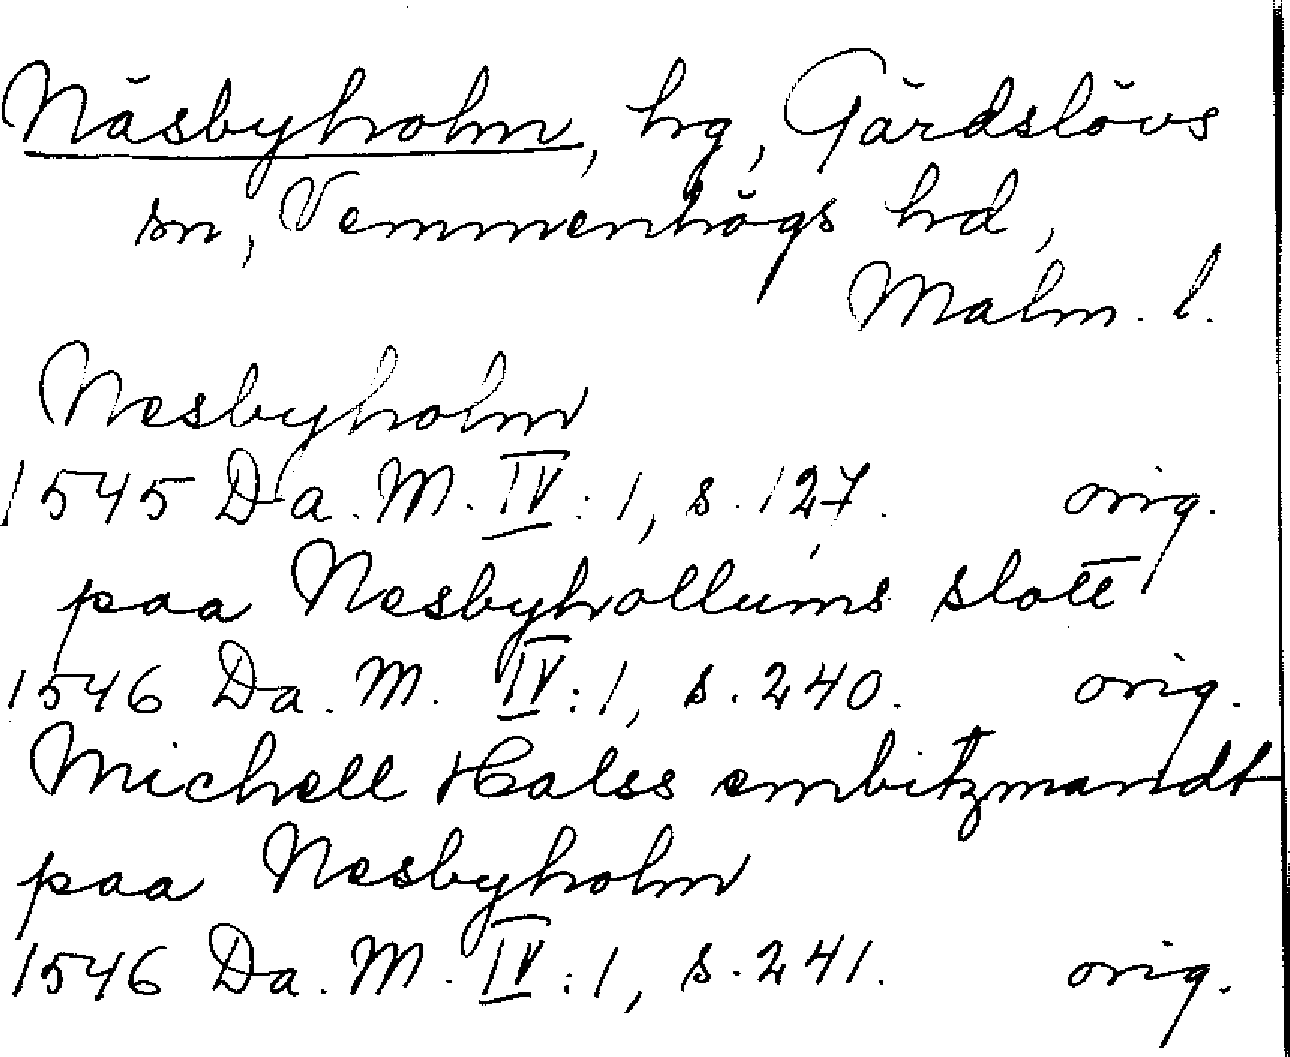 Näsbyholm, hg, Gärdslövs
sn, Vemmenhögs hd,
Malm. l.
Nesbyholm
1545 Da. M. IV: 1, s. 127. orig.
paa Nesbyhollums slott
1546 Da. M. IV: 1, s. 240. orig.
Michell Halss embitzmandt
paa Nesbyholm
1546 Da. M. IV: 1, s. 241. orig.